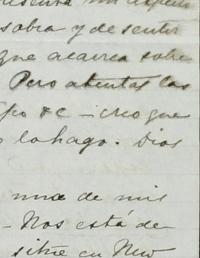 sobra y de sentir
que acaerca sobre
Pero atentas las
&c - creo que
lo hago. Dios
una de mis
- Nos está de
en New